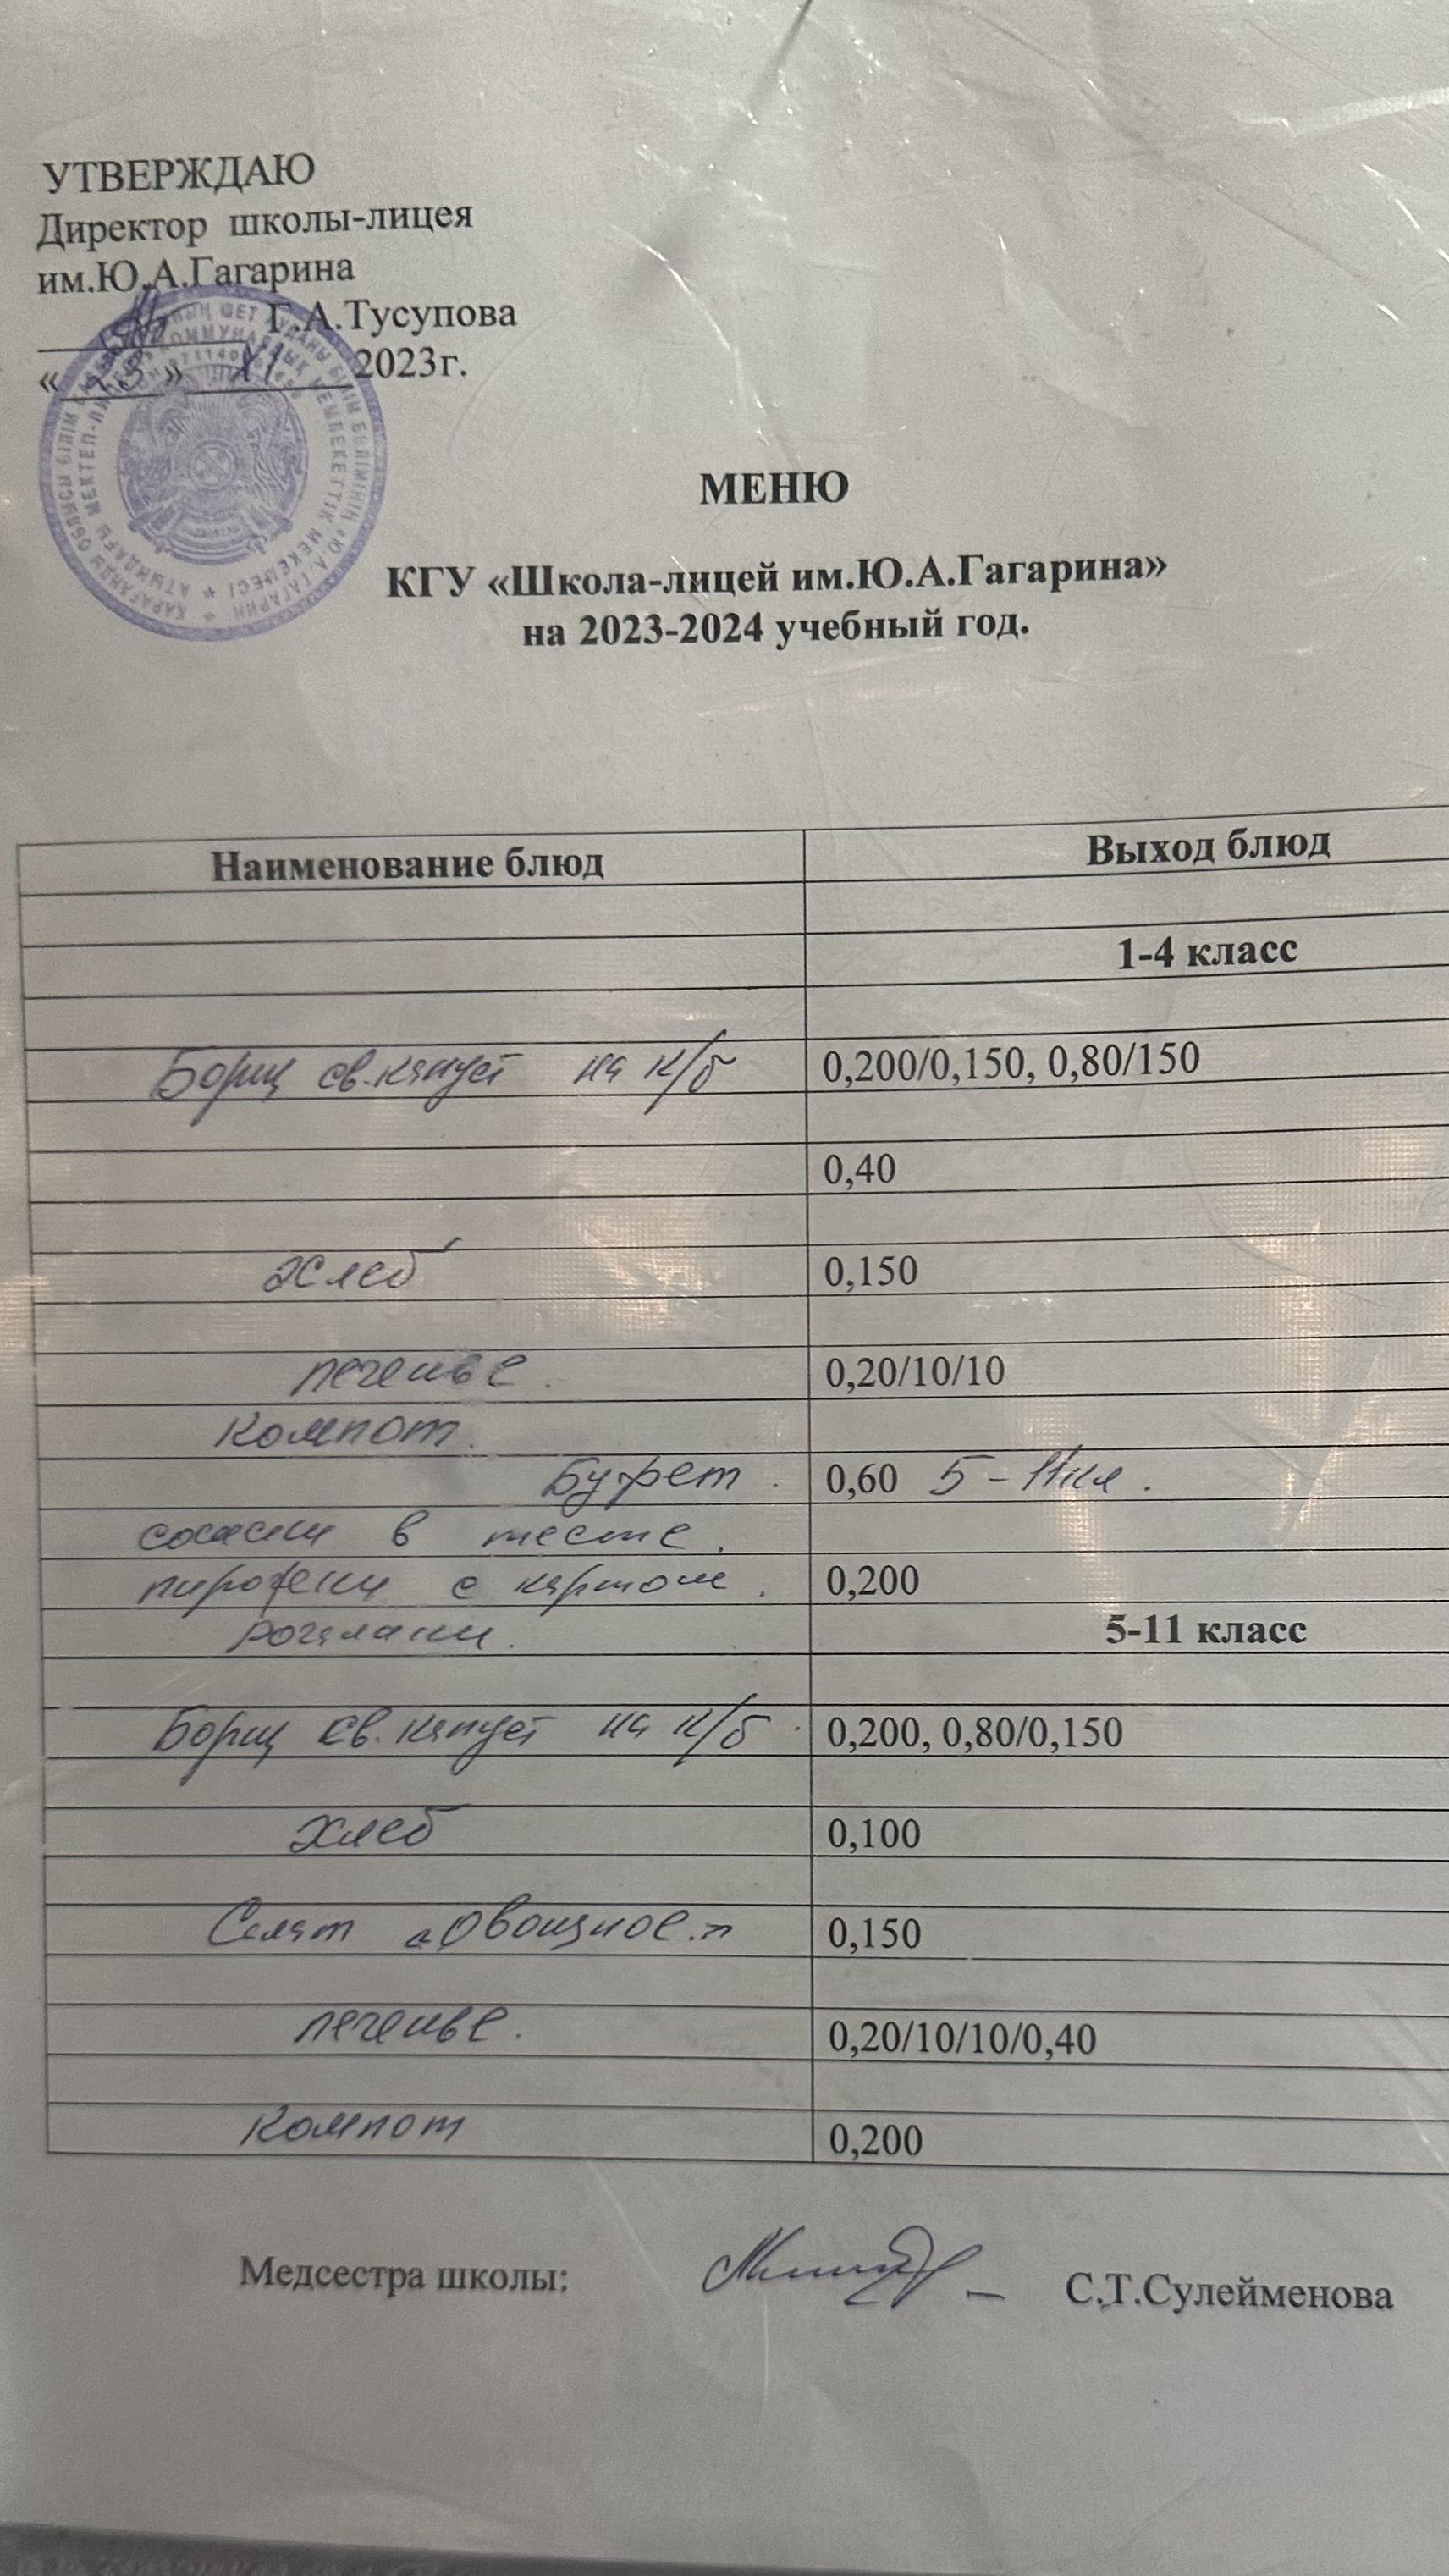 УТВЕРЖДАЮ
Директор школы-лицея
им.Ю.А.Гагарина
Г.А.Тусупова
« 23 » XI 2023г.
МЕНЮ
КГУ «Школа-лицей им.Ю.А.Гагарина»
на 2023-2024 учебный год.
Наименование блюд Выход блюд
1-4 класс
Борщ св.капуст на к/б 0,200/0,150, 0,80/150
0,40
Хлеб 0,150
печенье. 0,20/10/10
Компот.
Буфет. 0,60 5-11кл.
сосиски в тесте.
пирожки с картош. 0,200
рогалики. 5-11 класс
Борщ св.капуст на к/б 0,200, 0,80/0,150
Хлеб 0,100
Салат «Овощное.» 0,150
печенье. 0,20/10/10/0,40
Компот 0,200
Медсестра школы: С.Т.Сулейменова